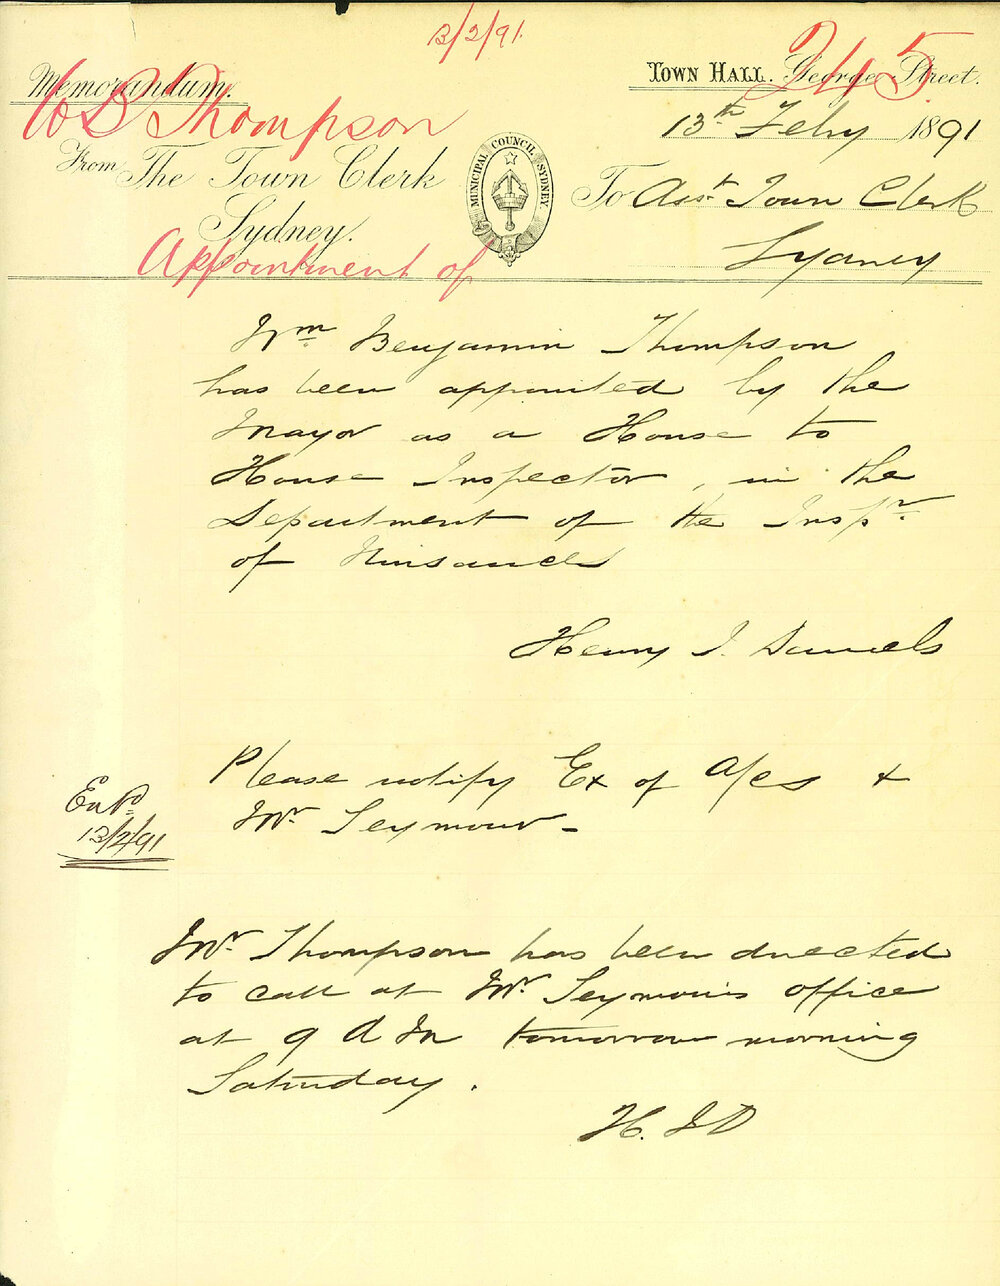 13/2/91
245
Memorandum.
Town Hall. George Street.
W B Thompson
13th Feby 1891
From The Town Clerk
Sydney.
MUNICIPAL COUNCIL SYDNEY
To Asst Town Clerk
Sydney
Appointment of
Wm Benjamin Thompson
has been appointed by the
Mayor as a House to
House Inspector, in the
Department of the Inspr
of Nuisances
Henry J. Daniels
Please notify Ex of a/cs +
Mr Seymour -
13/2/91
Mr Thompson has been directed
to call at Mr Seymour's office
at 9 A M tomorrow morning
Saturday.
H. J D